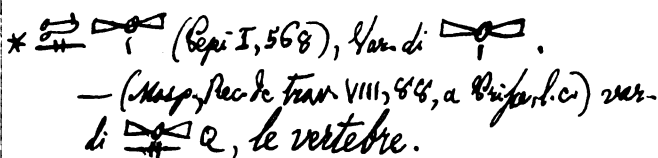 * (Pepi I, 568), Var. di .
— (Masp., Rec. de trav. VIII, 88, a l.c.) var.
di , le vertebre.